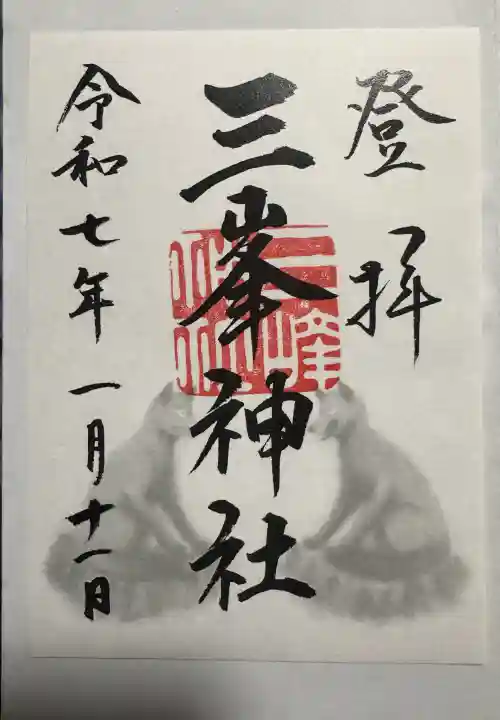 登拝
三峯神社
令和七年一月十一日